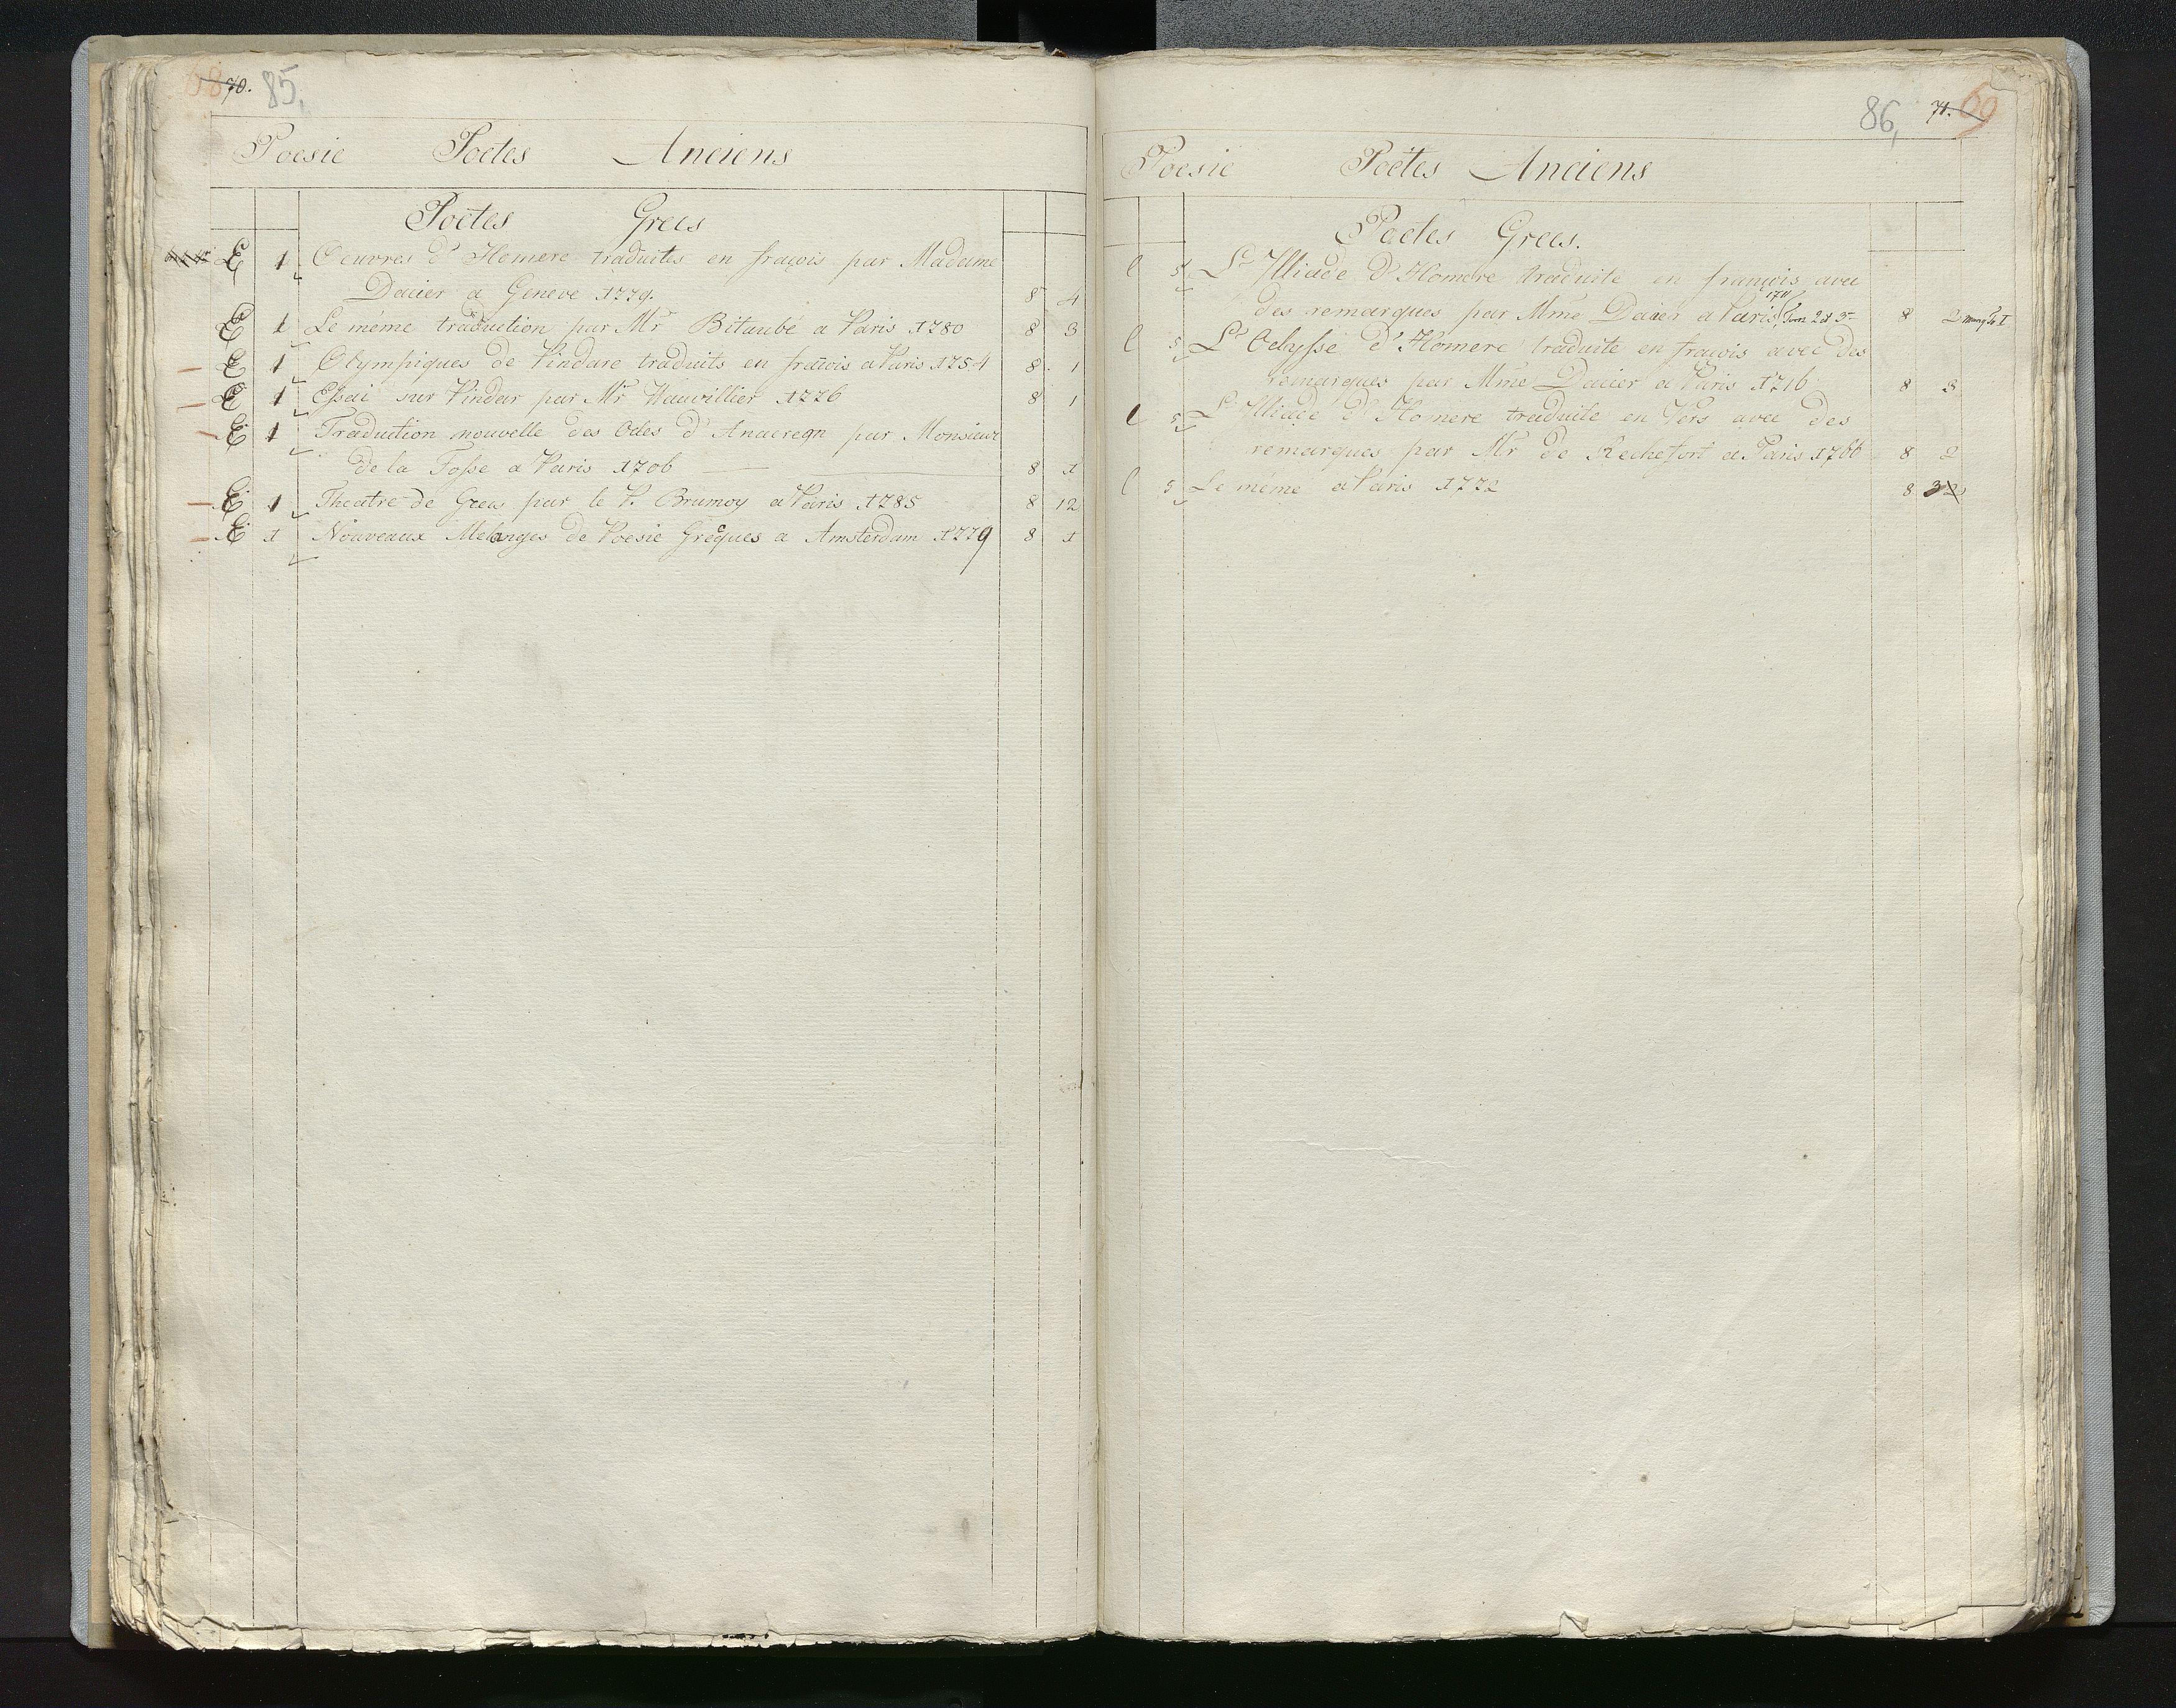 68 70. 85,
Poesie Poetes Anciens
Poetes Grecs
E 1 Oeuvres d'Homere traduites en fraçois par Madame
Dacier a Geneve 1779. 8 4
E 1 Le méme traduction par Mr Bitaubé a Paris 1780 8 3
E 1 Olympiques de Pindare traduits en fraçois a Paris 1754 8 1
E 1 Essai sur Pindar par Mr Vauvillier 1776 8 1
E 1 Traduction nouvelle des Odes d'Anacreon par Monsieur
de la Fosse a Paris 1706 8 1
E 1 Theatre de Grecs par le P. Brumoy a Paris 1785 8 12
E 1 Nouveaux Melanges de Poesie Greques a Amsterdam 1779 8 1
86, 71. 69
Poesie Poëtes Anciens
Poetes Grecs.
E 5 L'Illiade d'Homere traduite en françois avec
des remarques par Mme Dacier a Paris 1711 Tom 2 et 3 8 2 manq To I
E 5 L'Odysse d'Homere traduite en fraçois avec des
remarques par Mme Dacier a Paris 1716 8 3
E 5 L'Illiade d'Homere traduite en Vers avec des
remarques par Mr de Rochefort a Paris 1766 8 2
E 5 Le meme a Paris 1772 8 3